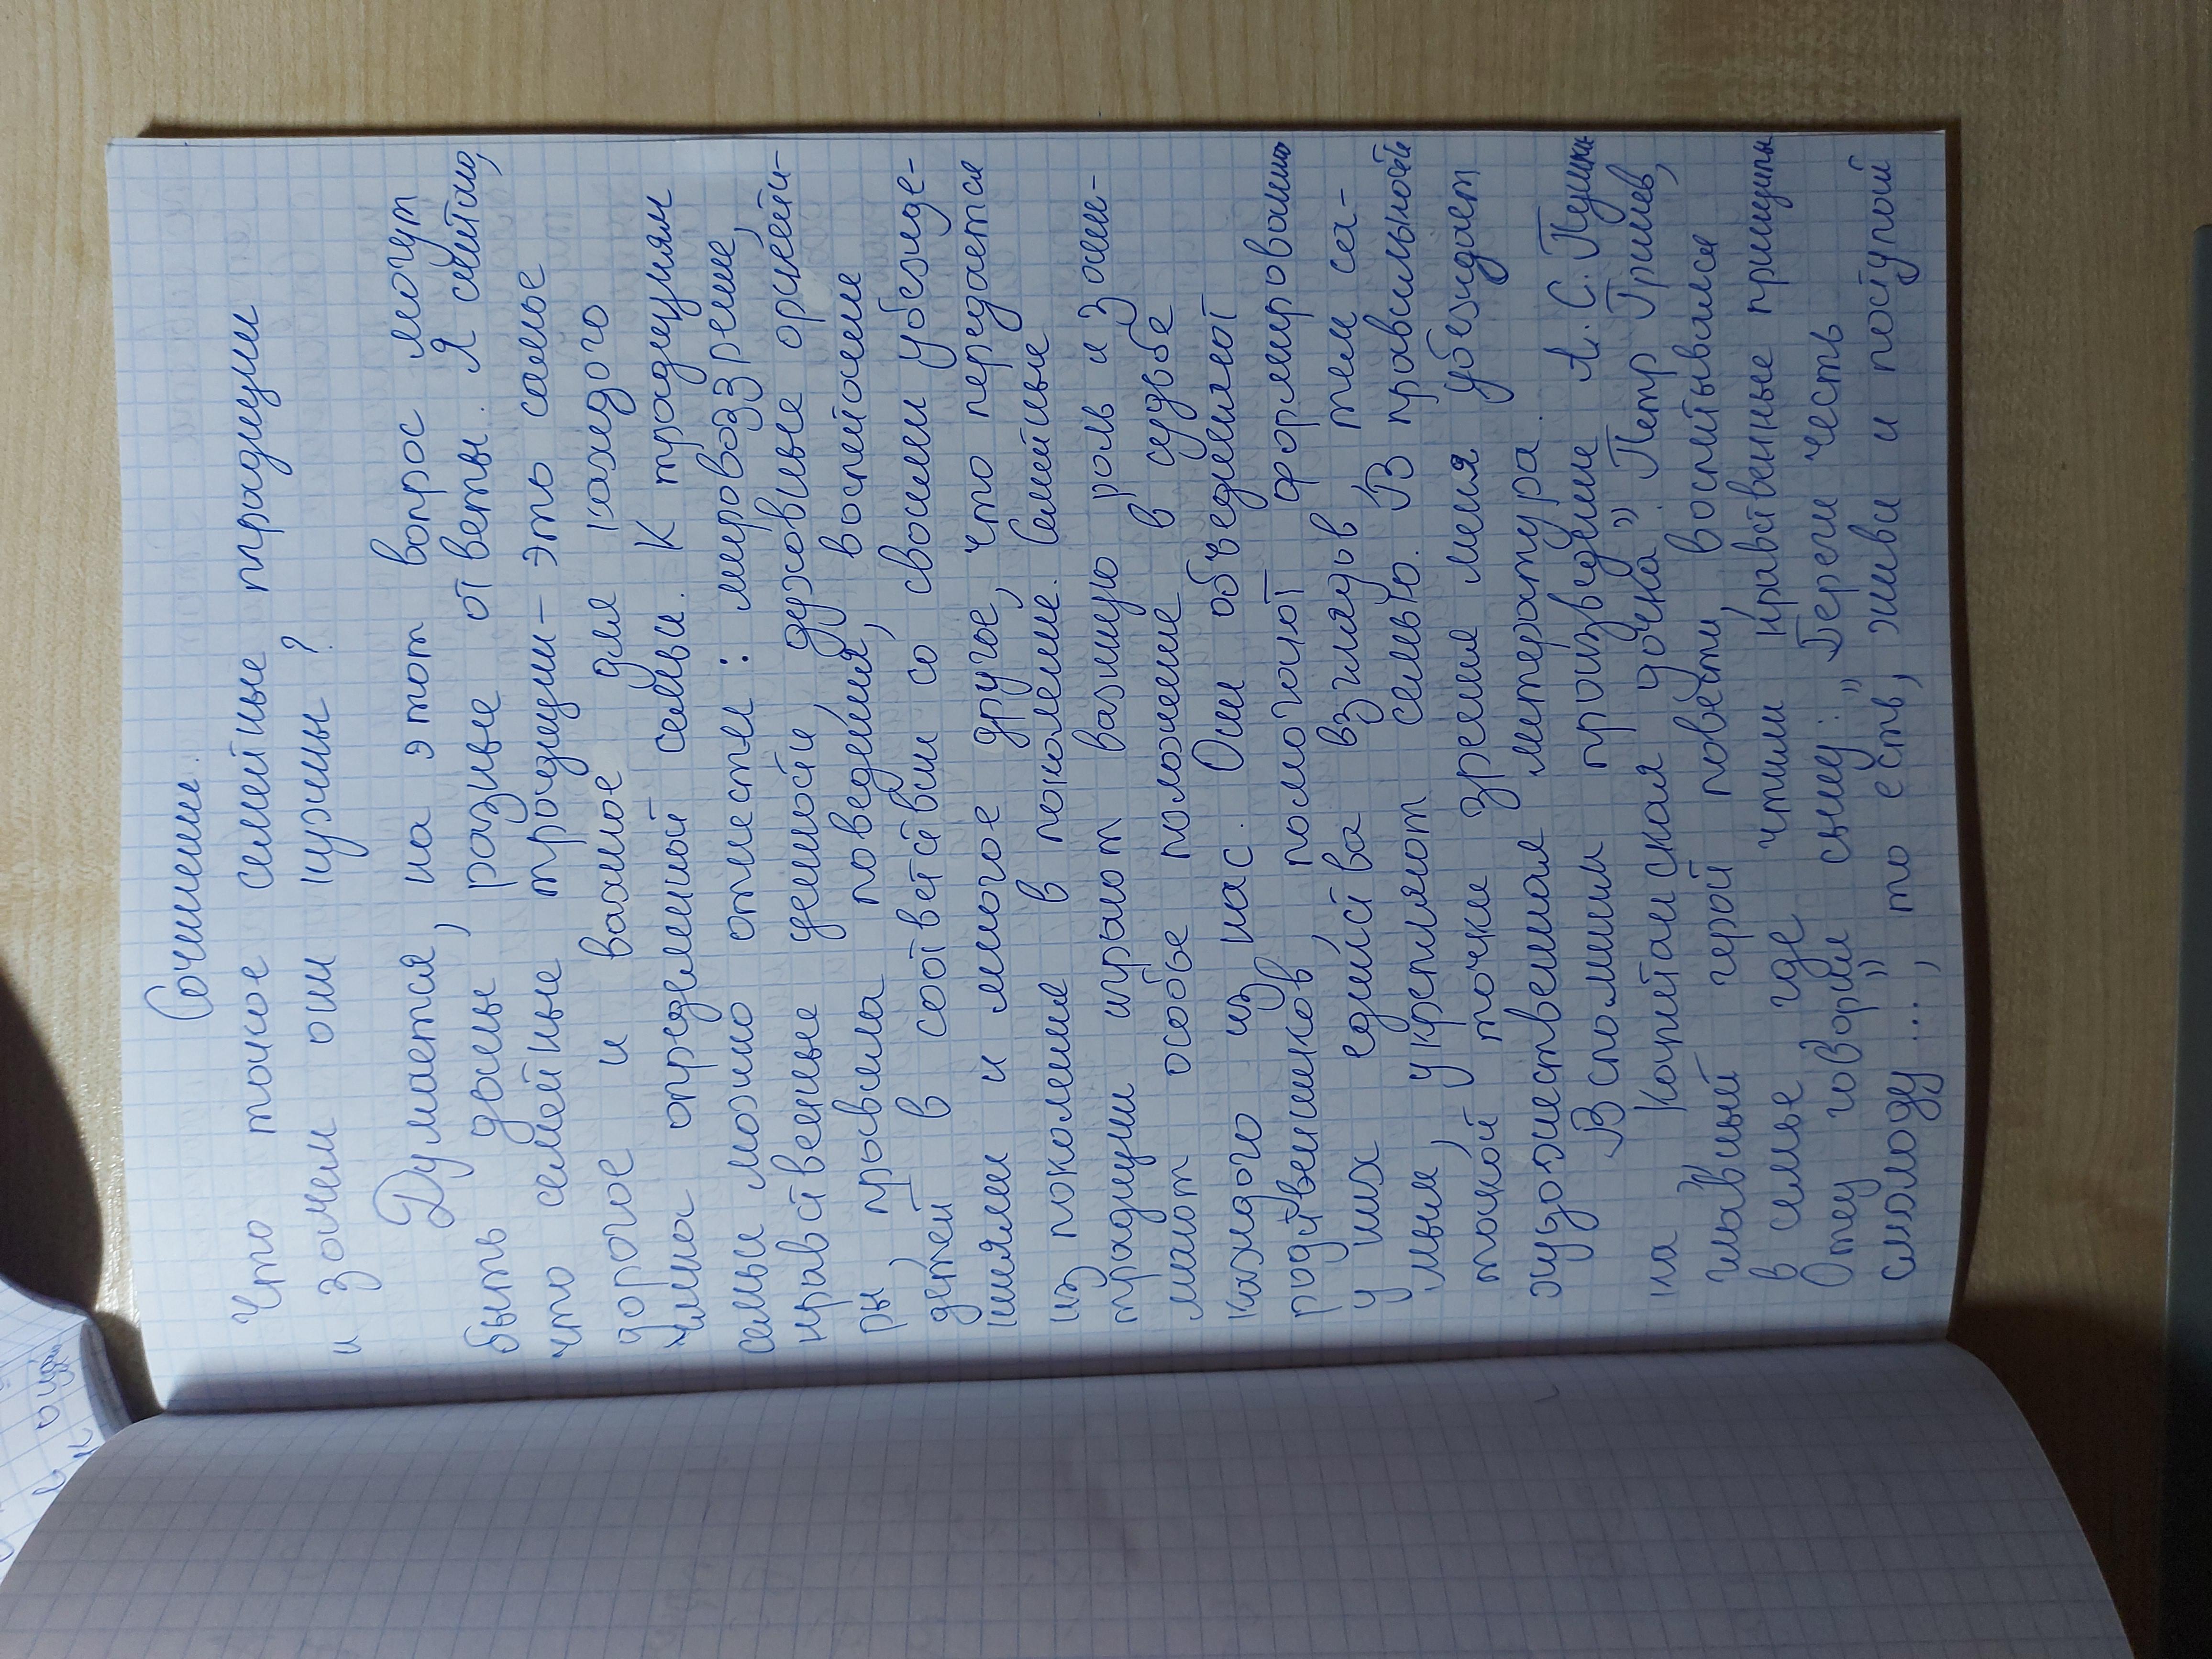 Сочинение.
Что такое семейные традиции
и зачем они нужны?
Думается, на этот вопрос могут
быть даны разные ответы. Я считаю,
что семейные трациции - это самое
дорогое и важное для каждого
члена определенной семьи. К традициям
семьи можно отнести: мировоззрение,
нравственные ценности, духовные ориенти-
ры, правила поведения, воспитание
детей в соответствии со своими убежде-
ниями и многое другое, что передается
из поколения в поколение. Семейные
традиции играют важную роль и зани-
мают особое положение в судьбе
каждого из нас. Они объединяют
родственников, помогают формированию
у них единства взглядов тем са-
мым, укрепляют семью. В правильности
такой точки зрения меня убеждает
художественная литература.
Вспомним произведение А.С. Пушки
на "Капитанская дочка". Петр Гринев,
главный герой повести, воспитывался
в семье где чтили нравственные принципы
Отец говорил сыну: "Береги честь
смолоду...", то есть, живи и поступай